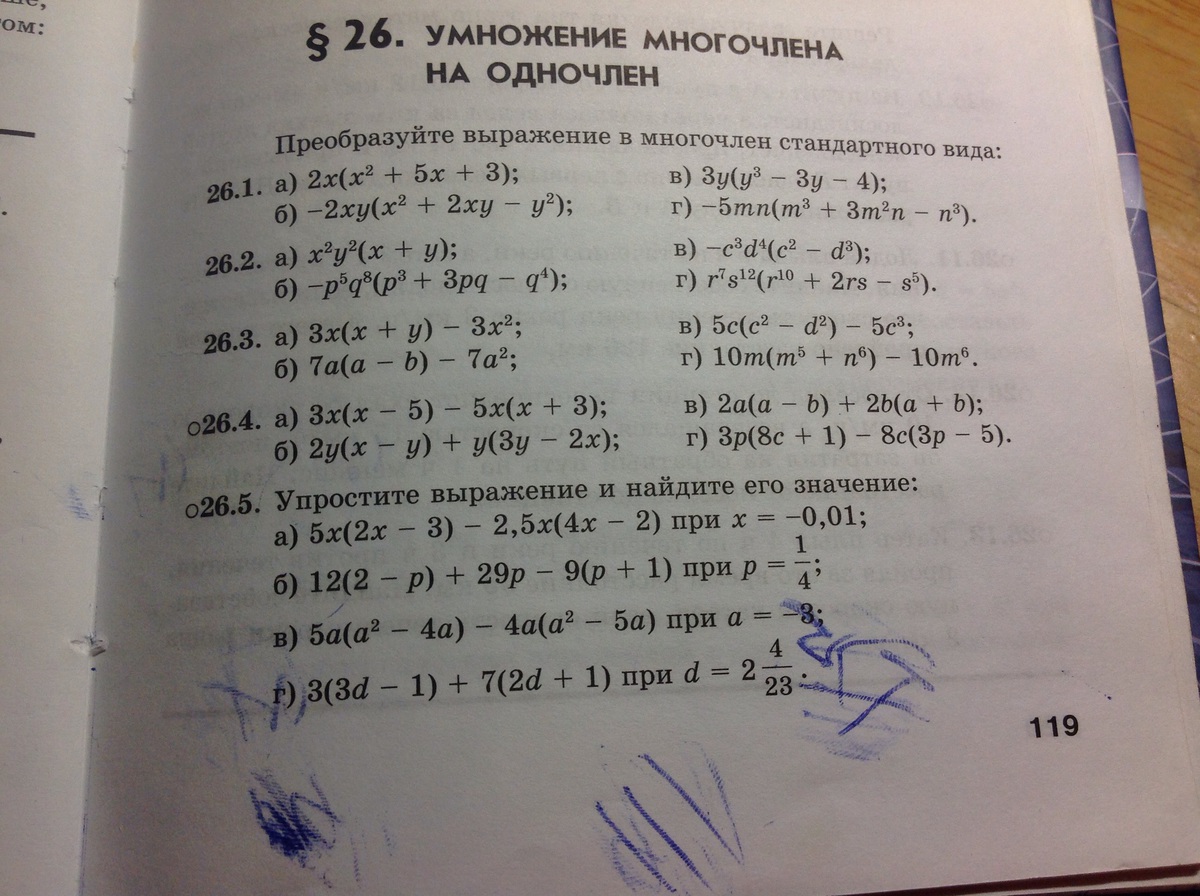 ом:
§ 26. УМНОЖЕНИЕ МНОГОЧЛЕНА
НА ОДНОЧЛЕН
Преобразуйте выражение в многочлен стандартного вида:
26.1. а) 2x(x² + 5x + 3); в) 3y(y³ − 3y − 4);
б) −2xy(x² + 2xy − y²); г) −5mn(m³ + 3m²n − n³).
26.2. а) x²y²(x + y); в) −c³d⁴(c² − d³);
б) −p⁵q⁸(p³ + 3pq − q⁴); г) r⁷s¹²(r¹⁰ + 2rs − s⁵).
26.3. а) 3x(x + y) − 3x²; в) 5c(c² − d²) − 5c³;
б) 7a(a − b) − 7a²; г) 10m(m⁵ + n⁶) − 10m⁶.
○26.4. а) 3x(x − 5) − 5x(x + 3); в) 2a(a − b) + 2b(a + b);
б) 2y(x − y) + y(3y − 2x); г) 3p(8c + 1) − 8c(3p − 5).
○26.5. Упростите выражение и найдите его значение:
а) 5x(2x − 3) − 2,5x(4x − 2) при x = −0,01;
б) 12(2 − p) + 29p − 9(p + 1) при p = 1/4;
в) 5a(a² − 4a) − 4a(a² − 5a) при a = −3;
г) 3(3d − 1) + 7(2d + 1) при d = 2 4/23.
119